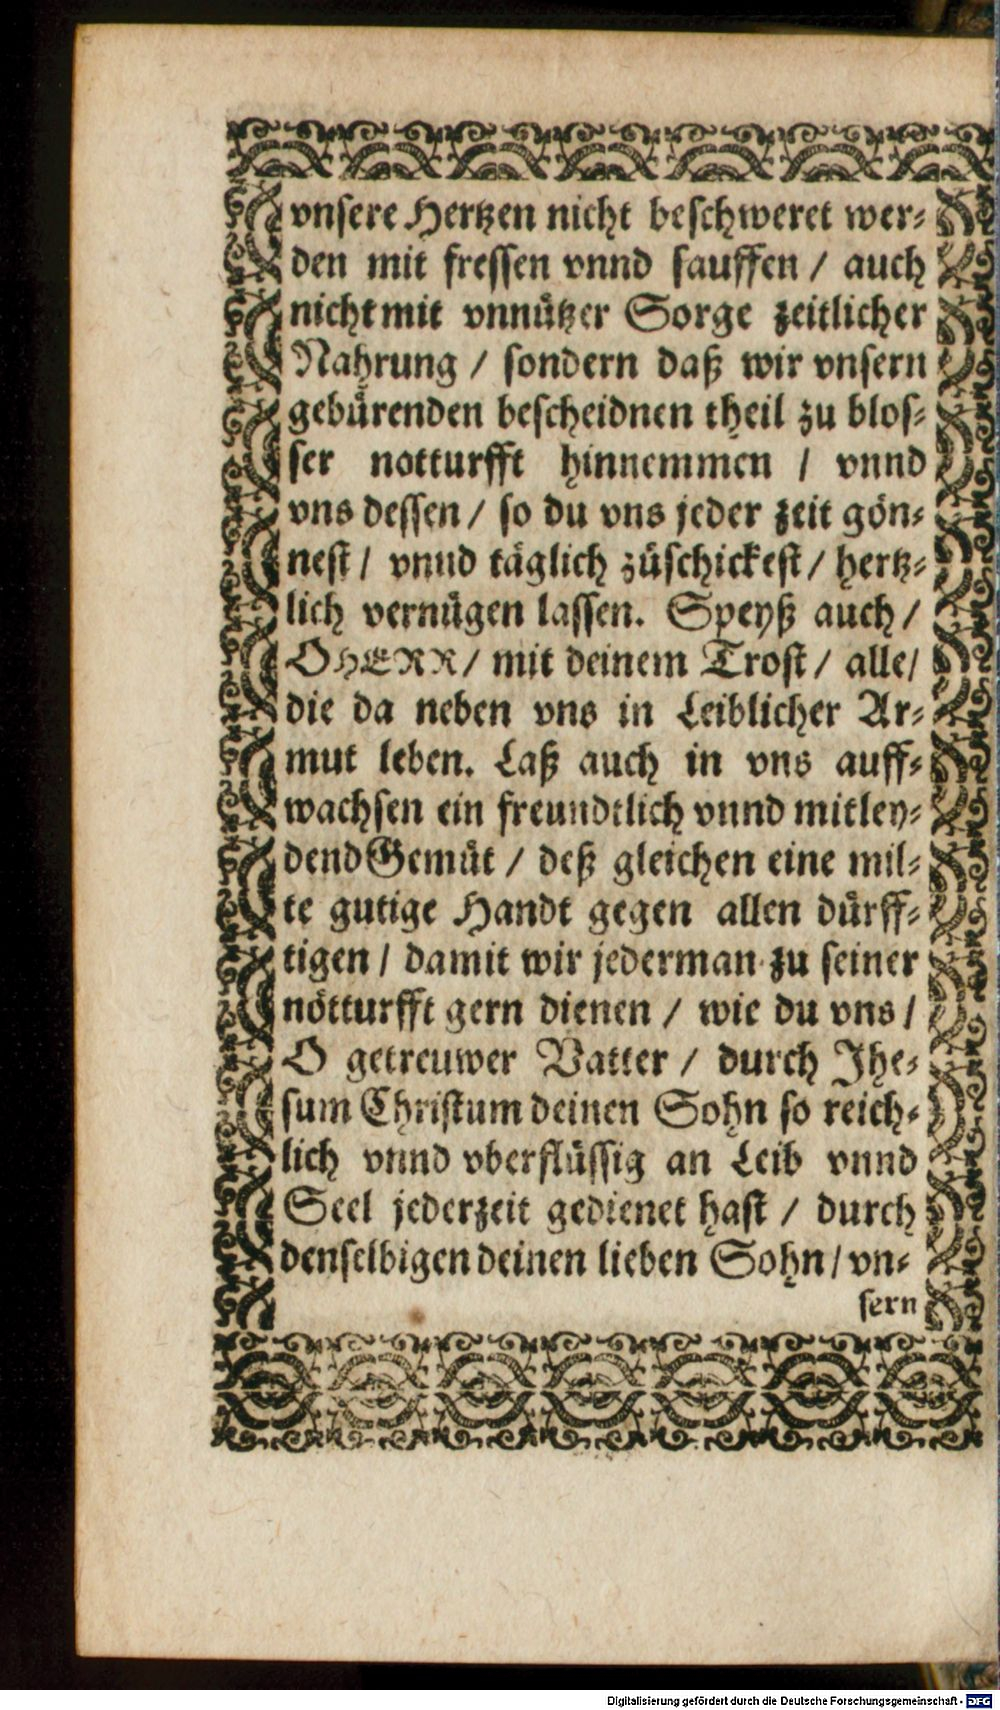 vnsere Hertzen nicht beschweret wer⸗
den mit fressen vnnd sauffen / auch
nicht mit vnnützer Sorge zeitlicher
Nahrung / sondern daß wir vnsern
gebürenden bescheidnen theil zu blos⸗
ser notturfft hinnemmen / vnnd
vns dessen / so du vns jeder zeit gön⸗
nest / vnnd täglich züschickest / hertz⸗
lich vernügen lassen. Speyß auch /
O HERR / mit deinem Trost / alle /
die da neben vns in Leiblicher Ar⸗
mut leben. Laß auch in vns auff⸗
wachsen ein freundtlich vnnd mitley⸗
dend Gemüt / deß gleichen eine mil⸗
te gutige Handt gegen allen dürff⸗
tigen / damit wir jederman zu seiner
nötturfft gern dienen / wie du vns /
O getreuwer Vatter / durch Jhe⸗
sum Christum deinen Sohn so reich⸗
lich vnnd vberflüssig an Leib vnnd
Seel jederzeit gedienet hast / durch
denselbigen deinen lieben Sohn / vn⸗
sern
Digitalisierung gefördert durch die Deutsche Forschungsgemeinschaft - DFG